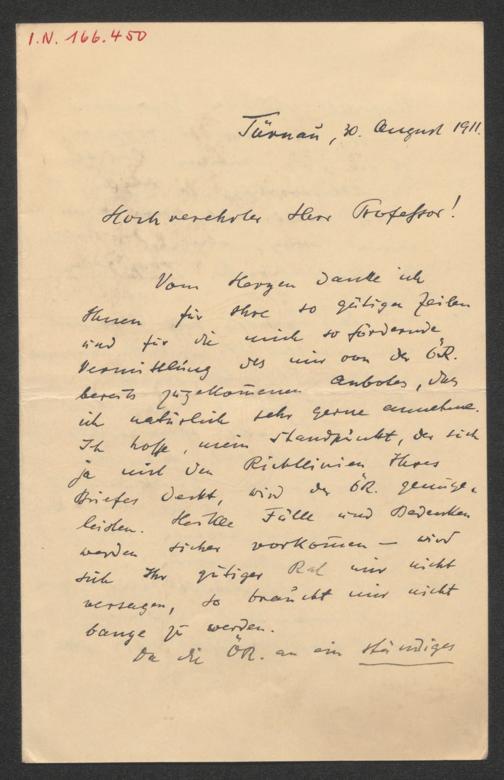 I.N. 166.450
Türnau, 30. August 1911.
Hochverehrter Herr Professor!
Vom Herzen danke ich
Ihnen für Ihre so gütigen Zeilen
und für die mich so fördernde
Vermittlung des mir von der ÖR.
bereits zugekommenen Anbotes, das
ich natürlich sehr gerne annehme.
Ich hoffe, mein Standpunkt, der sich
ja mit den Richtlinien Ihres
Briefes deckt, wird der ÖR. Genüge
leisten. Heikle Fälle und Bedenken
werden sicher vorkommen — wird
sich Ihr gütiger Rat mir nicht
versagen, so braucht mir nicht
bange zu werden.
Da die ÖR. an ein ständiges